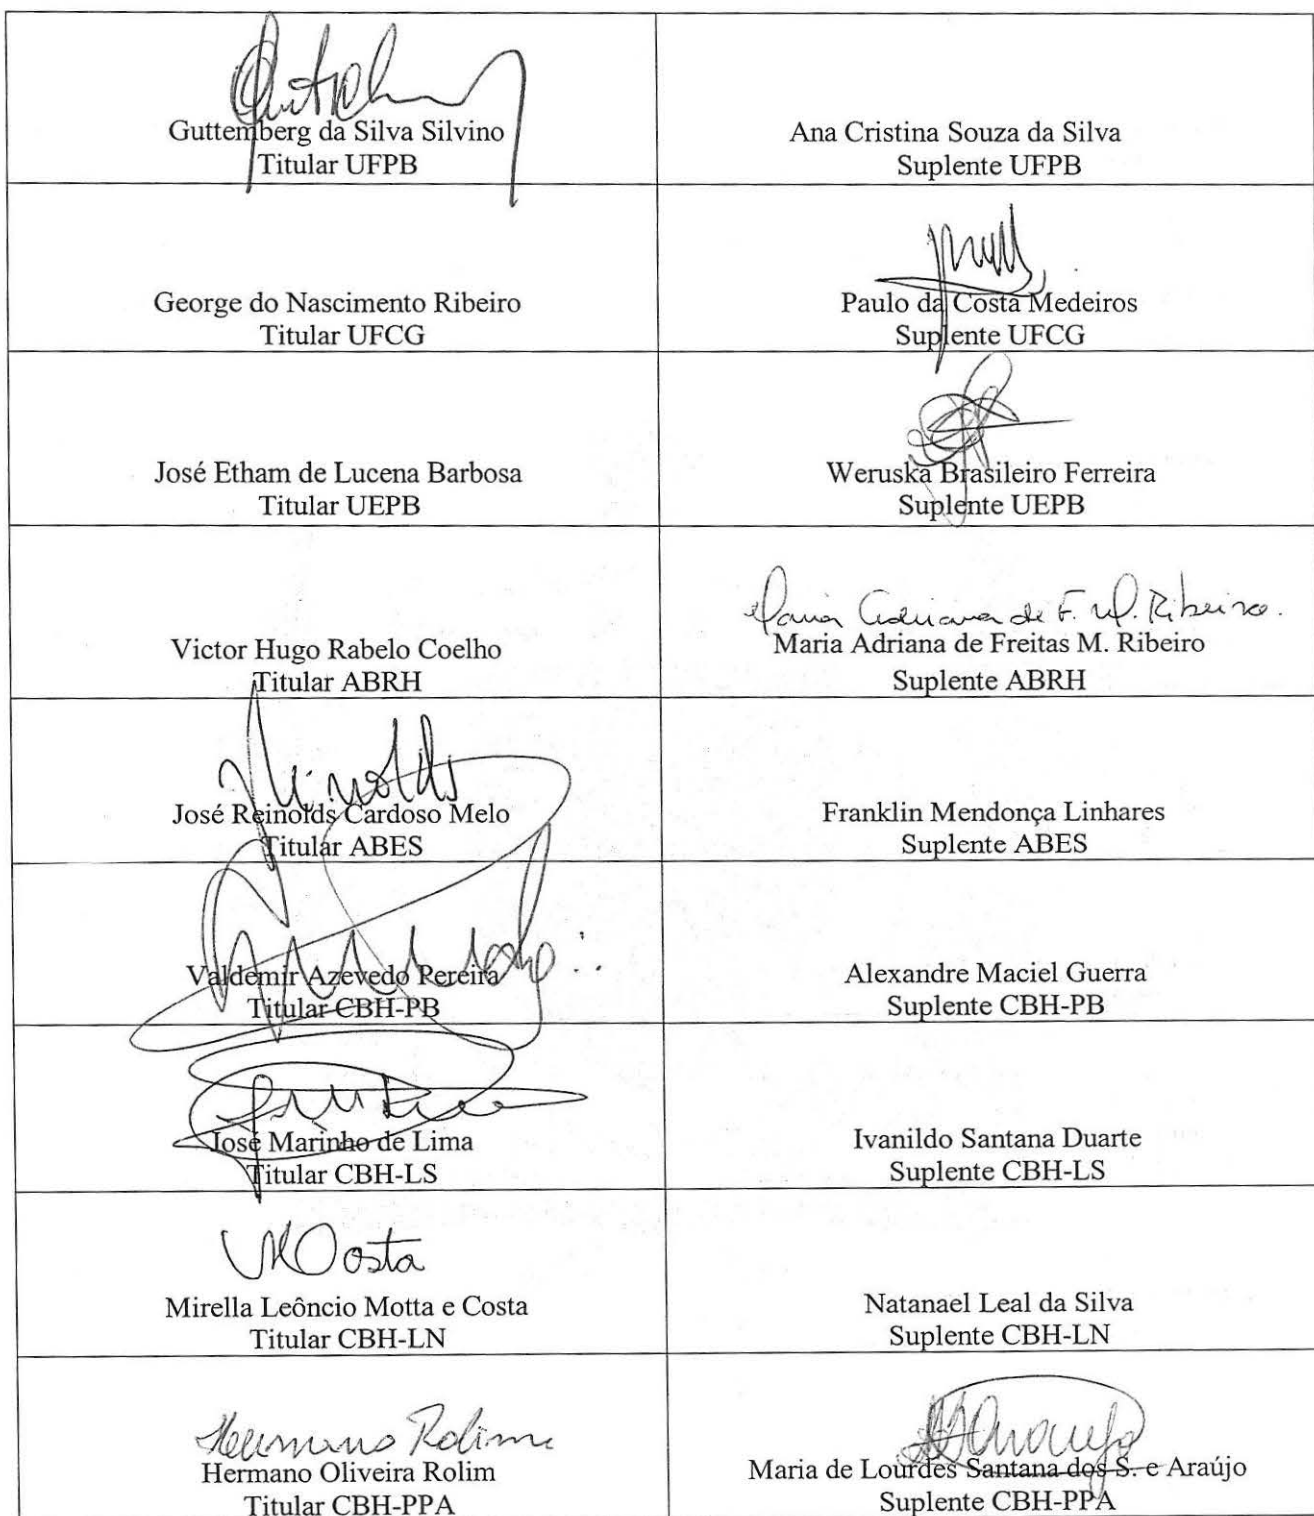 Guttemberg da Silva Silvino
Titular UFPB
Ana Cristina Souza da Silva
Suplente UFPB
George do Nascimento Ribeiro
Titular UFCG
Paulo da Costa Medeiros
Suplente UFCG
José Etham de Lucena Barbosa
Titular UEPB
Weruska Brasileiro Ferreira
Suplente UEPB
Victor Hugo Rabelo Coelho
Titular ABRH
Maria Adriana de F. M. Ribeiro.
Maria Adriana de Freitas M. Ribeiro
Suplente ABRH
Reinolds
José Reinolds Cardoso Melo
Titular ABES
Franklin Mendonça Linhares
Suplente ABES
Valdemir Azevedo Pereira
Titular CBH-PB
Alexandre Maciel Guerra
Suplente CBH-PB
José Marinho de Lima
Titular CBH-LS
Ivanildo Santana Duarte
Suplente CBH-LS
Costa
Mirella Leôncio Motta e Costa
Titular CBH-LN
Natanael Leal da Silva
Suplente CBH-LN
Hermano Rolim
Hermano Oliveira Rolim
Titular CBH-PPA
Araujo
Maria de Lourdes Santana dos S. e Araújo
Suplente CBH-PPA